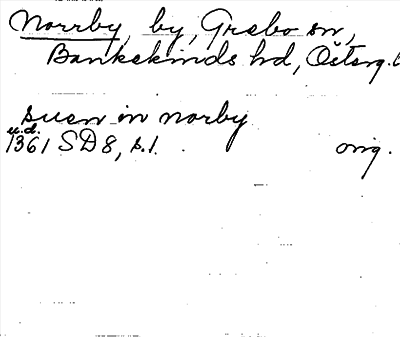 Norrby, by, Grebo sn,
Bankekinds hd, Österg. l
suen in norby
u.d.
1361 SD 8, s. 1. orig.